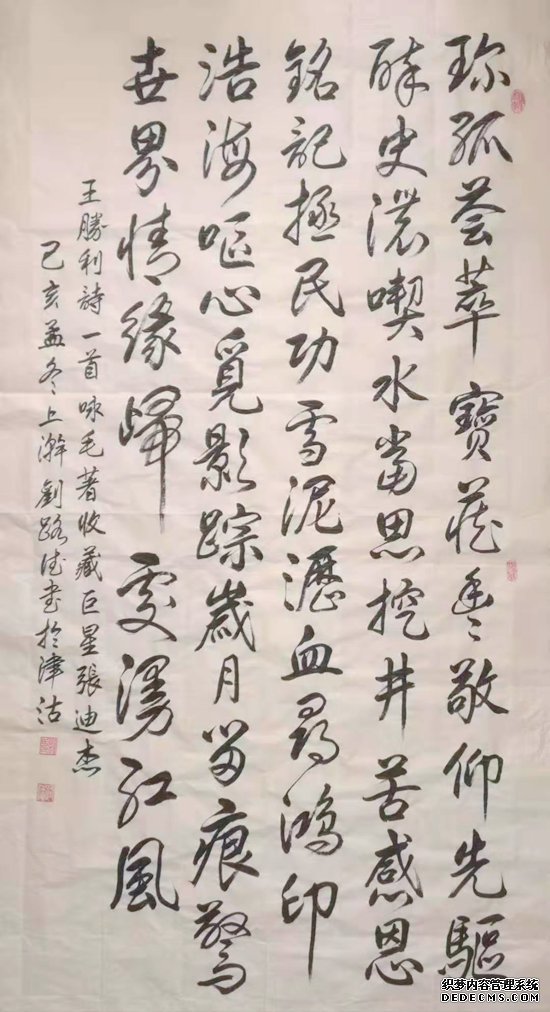 珍孤荟萃寶藏豐敬仰先驅
醉史濃喫水當思挖井苦感恩
銘記拯民功雪泥瀝血尋鴻印
浩海嘔心覓影踪歲月留痕驚
世界情緣歸處漫紅風
王勝利詩一首咏毛著收藏巨星張迪杰
己亥孟冬上澣劉路書於津沽
织梦内容管理系统
DEDECMS.COM